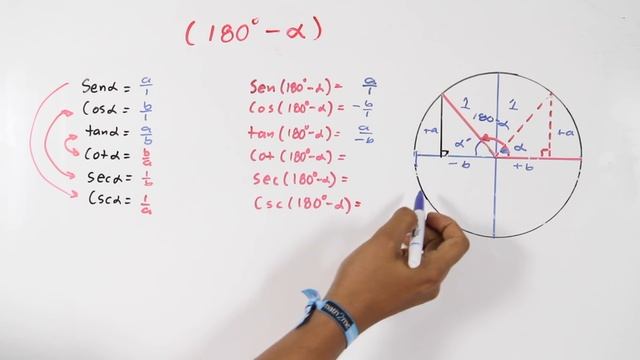 (180° - α)
Senα = a/1
Cosα = b/1
tanα = a/b
Cotα = b/a
secα = 1/b
Cscα = 1/a
Sen(180°-α) = a/1
Cos(180°-α) = -b/1
tan(180°-α) = a/-b
Cot(180°-α) =
sec(180°-α) =
Csc(180°-α) =
1 1
180-α
+a +a
α' α α
-b +b
math2me